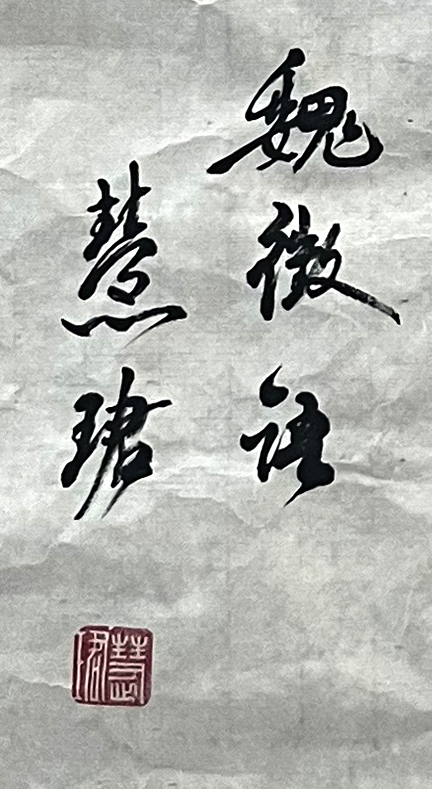 魏徵語
慧珺
慧珺